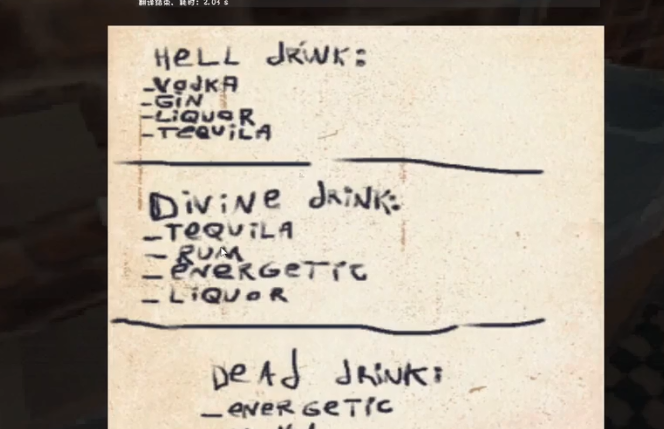 翻译结束，耗时：2.04 s
HELL dRINK:
-VodKA
-GiN
-LiQUoR
-TEQUiLA
DiViNe dRiNK:
-TEQUiLA
- RUM
- eNERGeTIC
- LiQUoR
DeAd dRiNK:
-eNERGETIC